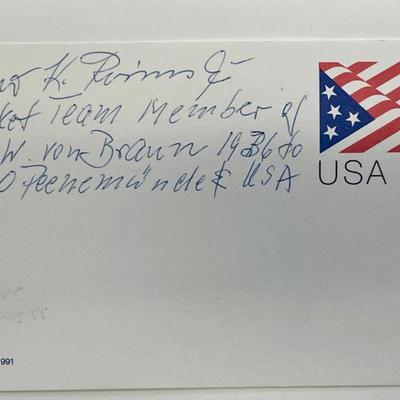 K.
ket Team Member of
W. von Braun 1936 to
0 Peenemünde & USA
USA
991